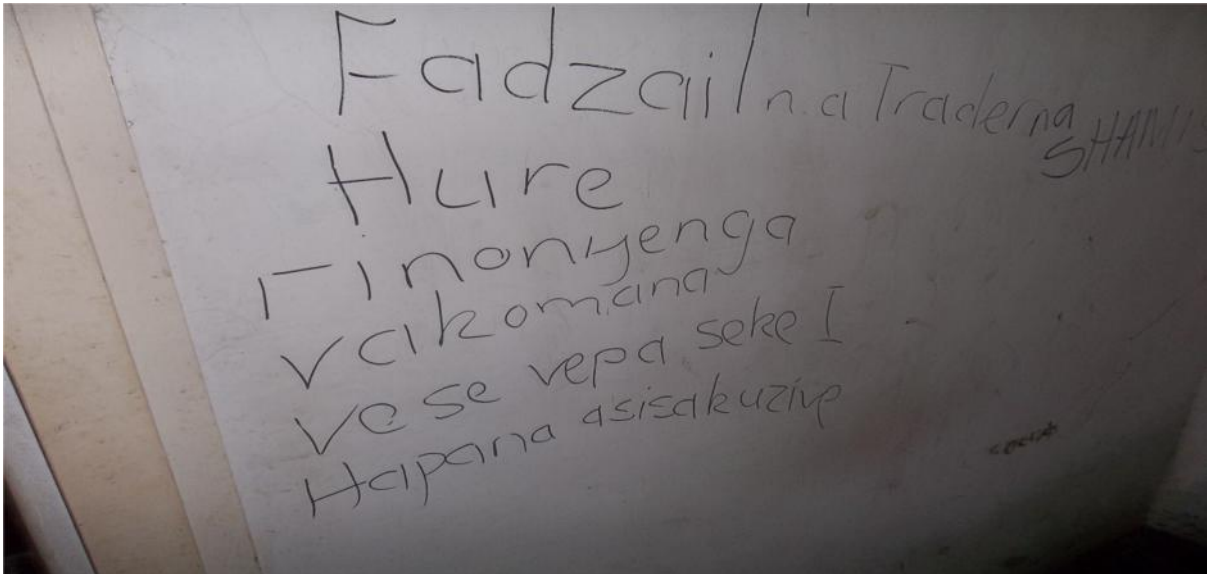 Fadzail n.a Traderna SHAMIS
Hure
rinonyenga
vakomana
vese vepa seke I
Hapana asisakuzive